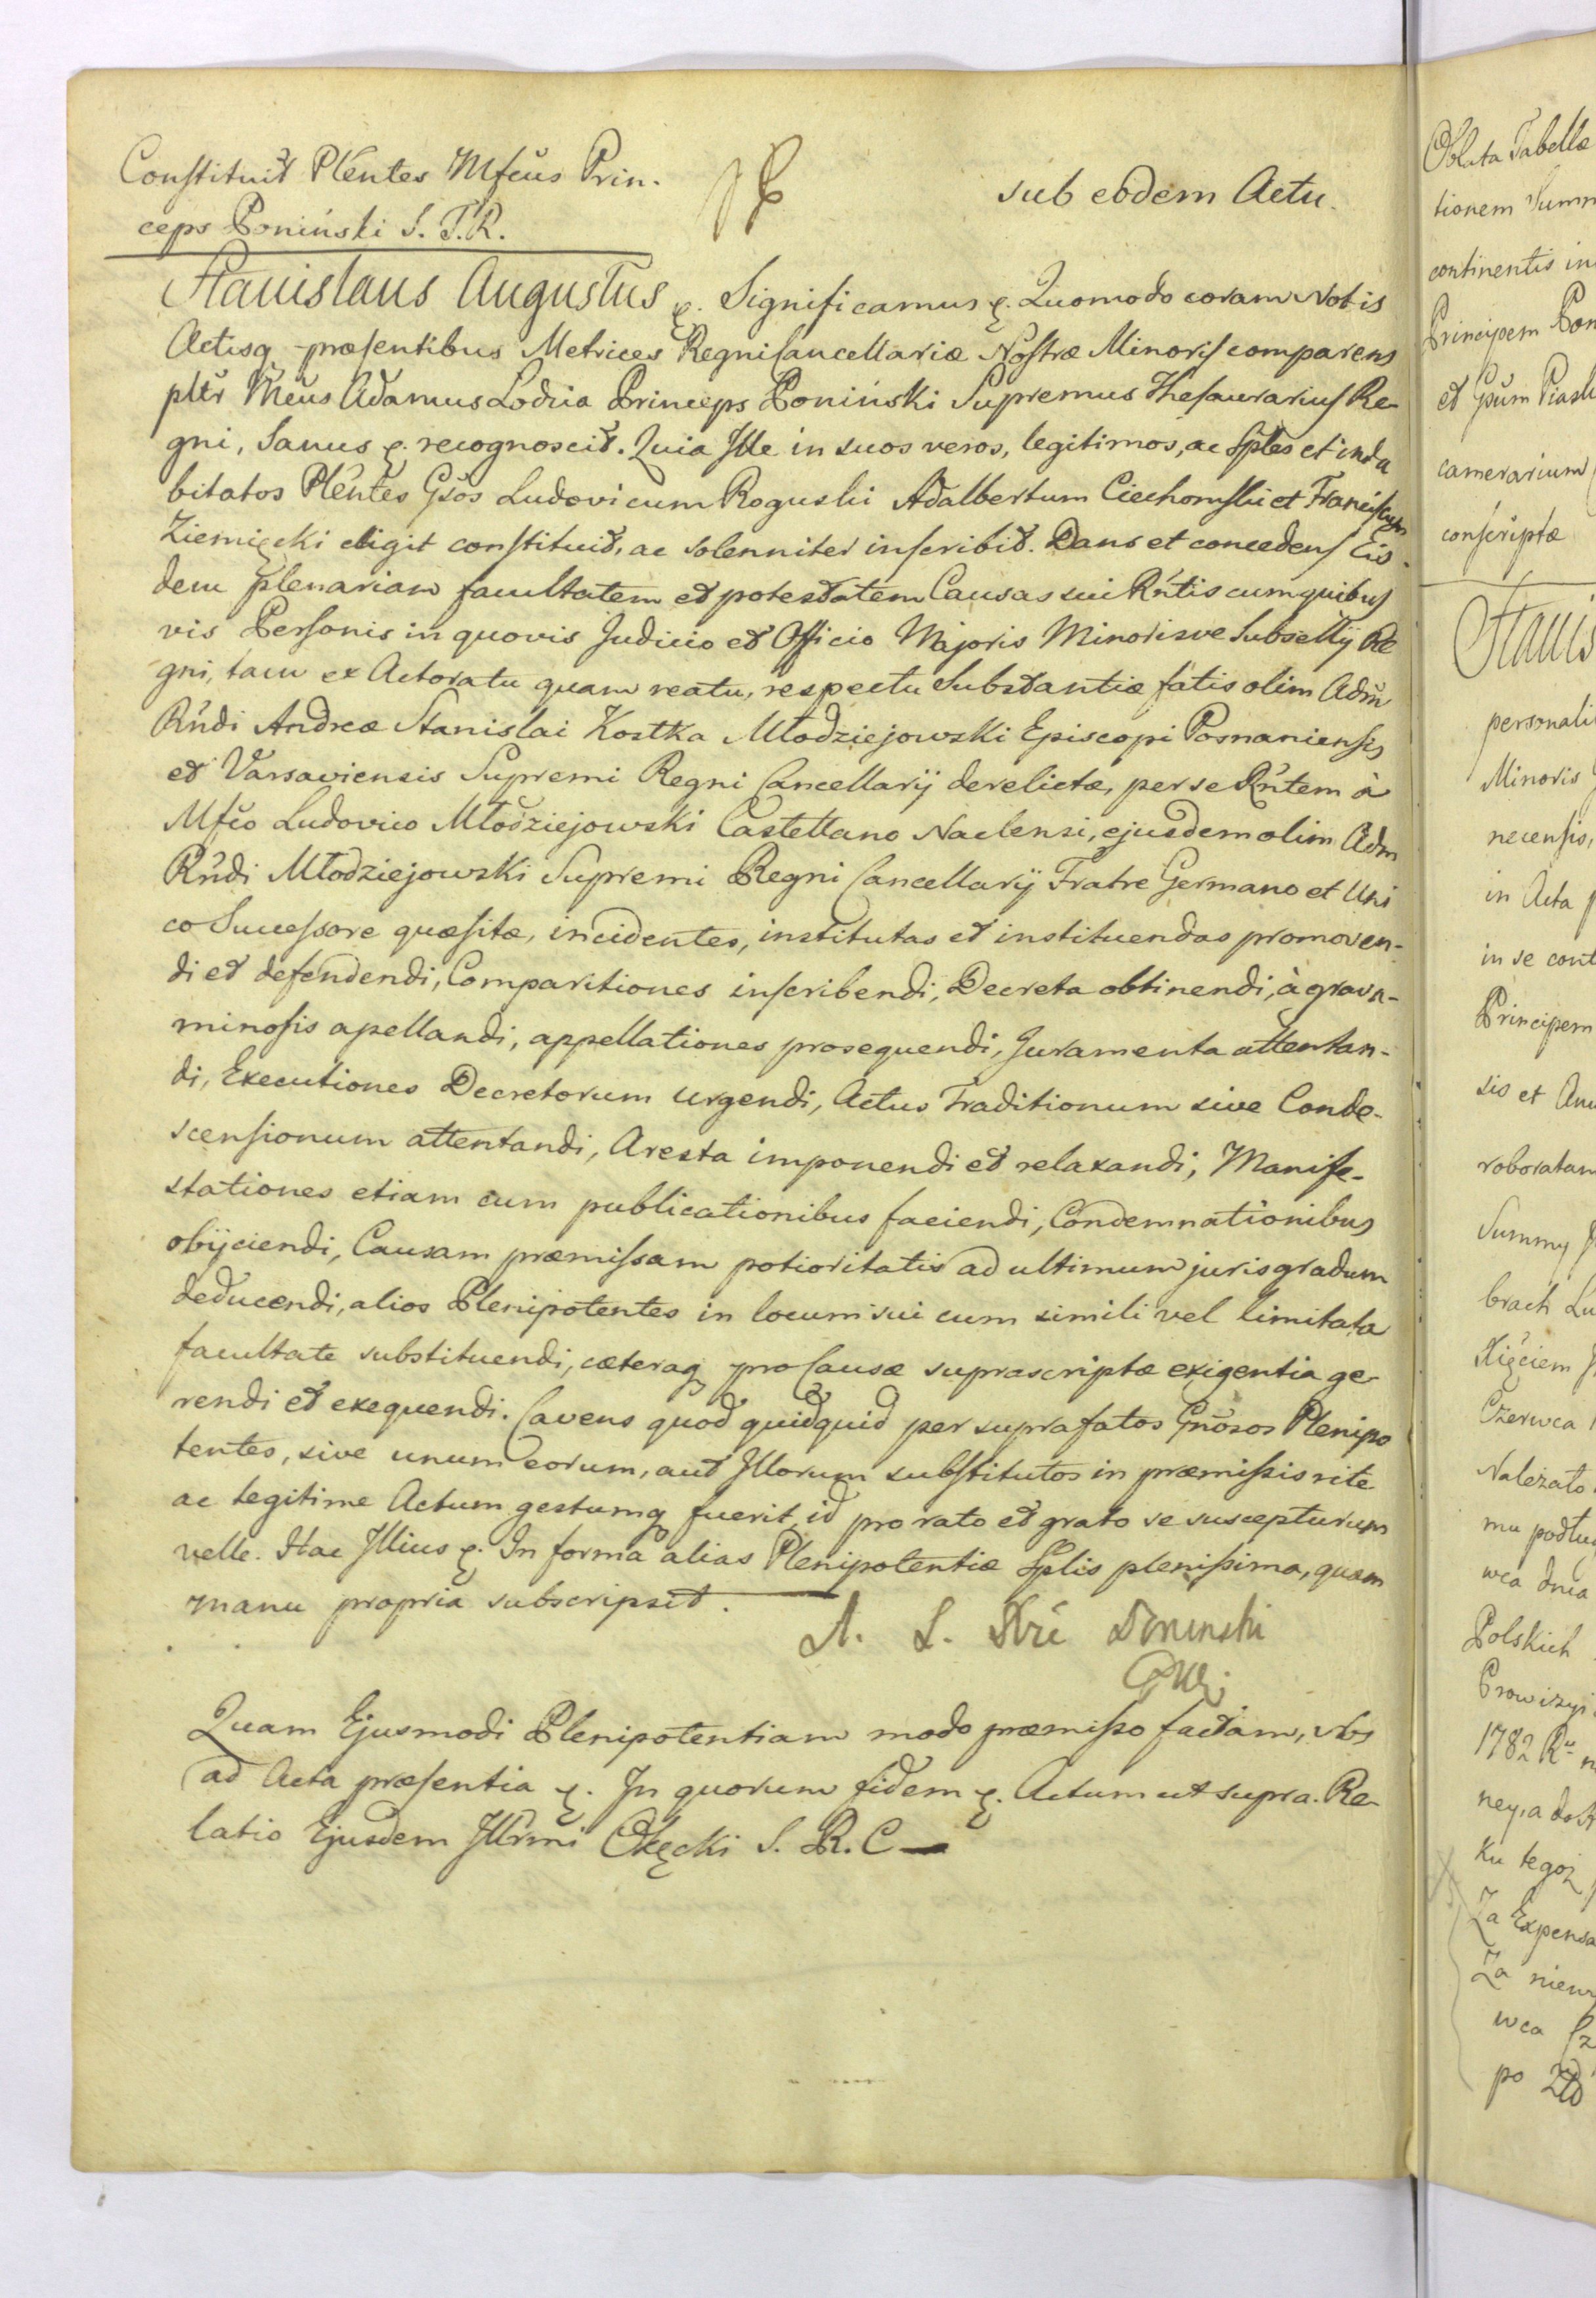 Constituit Plentes Mfcus Prin-
ceps Poniński S. T. R.
sub eodem Actu.
Stanislaus Augustus &. Significamus &. Quomodo coram Nobis
Actisq præsentibus Metrices Regni Cancellariæ Nostræ Minoris comparens
pltr Mcus Adamus Lodzia Princeps Poniński Supremus Thesaurarius Re-
gni, Sanus &. recognoscit. Quia Ille in suos veros, legitimos, ac Sples et indu
bitatos Plentes Gsos Ludovicum Roguski Adalbertum Ciechomski et Franciscum
Ziemięcki eligit constituit, ac solenniter inscribit. Dans et concedens Eis-
dem plenariam facultatem et potestatem Causas sui Rntis cum quibus
vis Personis in quovis Judicio et Officio Majoris Minorisve Subsellij Re
gni, tam ex Actoratu quam reatu, respectu Substantiæ fatis olim Adm
Rndi Andreæ Stanislai Kostka Młodziejowski Episcopi Posnaniensis
et Varsaviensis Supremi Regni Cancellarij derelictæ, per se Rntem à
Mfco Ludovico Młodziejowski Castellano Naclensi, ejusdem olim Adm
Rndi Młodziejowski Supremi Regni Cancellarij Fratre Germano et Uni
co Successore quæsitæ, incidentes, institutas et instituendas promoven-
di et defendendi, Comparitiones inscribendi, Decreta obtinendi, à grava-
minosis apellandi, appellationes prosequendi, Juramenta attentan-
di, Executiones Decretorum urgendi, Actus Traditionum sive Conde-
scensionum attentandi, Aresta imponendi et relaxandi, Manife-
stationes etiam cum publicationibus faciendi, Condemnationibus
obijciendi, Causam præmissam potioritatis ad ultimum juris gradum
deducendi, alios Plenipotentes in locum sui cum simili vel limitata
facultate substituendi, cæteraq pro Causæ suprascriptæ exigentia ge-
rendi et exequendi. Cavens quod quidquid per suprafatos Gnosos Plenipo
tentes, sive unum eorum, aut Illorum substitutos in præmissis rite
ac legitime Actum gestumq fuerit, id pro rato et grato se suscepturum
velle. Hac Illius &. In forma alias Plenipotentiæ Splis plenissima, quam
manu propria subscripsit.
A. L. Poninski
Quam Ejusmodi Plenipotentiam modo præmisso factam, Nos
ad Acta præsentia &. In quorum fidem &. Actum ut supra. Re-
latio Ejusdem Illrmi Okęcki S. R. C
Oblata Tabellæ
tionem Summ
continentis in
Principem Pon
et Gsum Piask
camerarium
conscriptæ
Stanis
personali
Minoris
necensis,
in Acta
in se cont
Principem
sis et Ann
roboratam
Summy
brach Lu
Xięciem
Czerwca
Należało
mu podług
wca dnia
Polskich
Prowizyi
1782 Ru
ney, a do
Ku tegoż
Za Expensa
Za niew
wca
po Zło